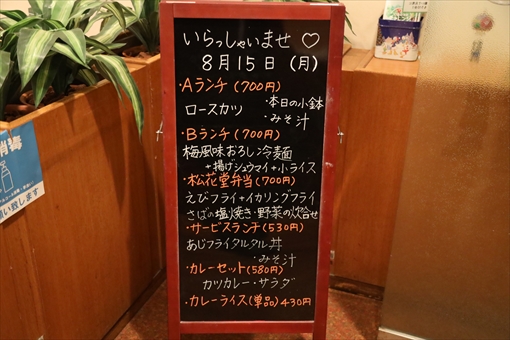 いらっしゃいませ ♡
8月15日(月)
・Aランチ(700円)
ロースカツ ・本日の小鉢
・みそ汁
・Bランチ(700円)
梅風味おろし冷麺
+揚げシュウマイ+小ライス
・松花堂弁当(700円)
えびフライ+イカリングフライ
さばの塩焼き・野菜の炊合せ
・サービスランチ(530円)
あじフライタルタル丼
・みそ汁
・カレーセット(580円)
カツカレー・サラダ
・カレーライス(単品)430円
消毒
い致します